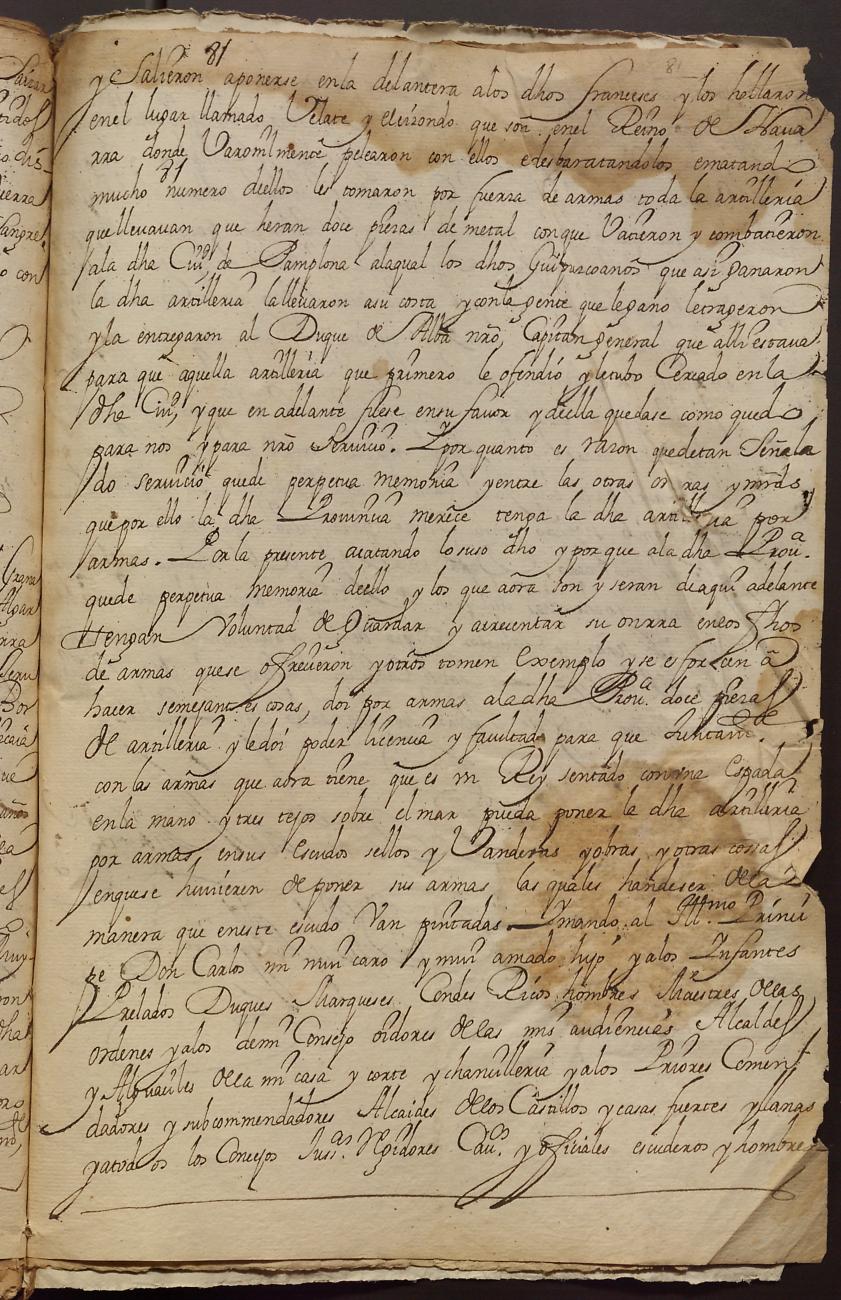 81
81
y Salieron aponerse enla delantera alos dhos franceses y los hallaron
enel lugar llamado Velate y eleizondo que son enel Reino de Nava
rra donde Varonilmente pelearon con ellos edesbaratandolos ematando
mucho numero deellos les tomaron por fuerza de armas toda la artilleria
quellevavan que heran doce piezas de metal conque Vatieron y combatieron
ala dha Ciud de Pamplona alaqual los dhos Guipuzcoanos que asi ganaron
la dha artilleria lallevaron asu costa yconla gente que legano letrageron
yla entregaron al Duque de Alba nro, Capitan general que alli estava
para que aquella artilleria que primero le ofendio yletubo Cercado en la
dha Ciud, y que en adelante fuese ensu favor y deella quedase como quedo
para nos y para nro Servicio. Y por quanto es razon quedetan Señala
do servicio quede perpetua memoria yentre las otras on ras ymrds
que por ello la dha Provincia merece tenga la dha artilleria por
armas. Por la presente acatando losuso dho y por que ala dha Prova.
quede perpetua memoria deello y los que aora son y seran deaqui adelante
tengan Voluntad de Guardar y acrecentar su onrra enlos fhos
de armas quese ofrecieron yotros tomen Exemplo y se esfuercen a
hacer semejantes cosas, doi por armas ala dha Prova. doce piezas
de artilleria y ledoi poder licencia y facultad para que Juntamte.
con las armas que aora tiene que es vn Rey sentado convna Espada
enla mano y tres tejos sobre el mar pueda poner la dha artilleria
por armas, ensus Escudos sellos y Vanderas yobras yotras cossas
enquese huvieren de poner sus armas las quales handeser de la
manera que eneste escudo Van pintadas. Ymando al Illmo Princi
pe Don Carlos mi mui caro y mui amado hijo yalos Infantes
Prelados Duques Marqueses Condes Ricos hombres Maestres delas
ordenes yalos demi Consejo oidores delas mis audiencias Alcaldes
y Alguaciles dela mi casa y corte ychancilleria yalos Priores Comen
dadores y subcommendadores Alcaides delos Castillos ycasas fuertes yllanas
yatodos los Concejos Jussas. Rgidores Cavos. y oficiales escuderos y hombres